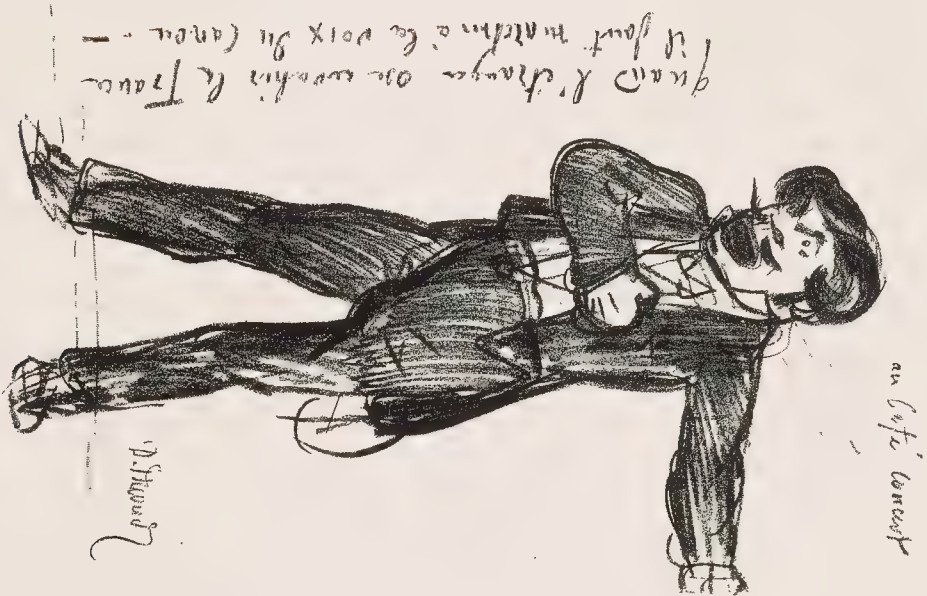 au Café concert
quand l'étranger ose envahir la France
il faut marcher à la voix du Canon. —